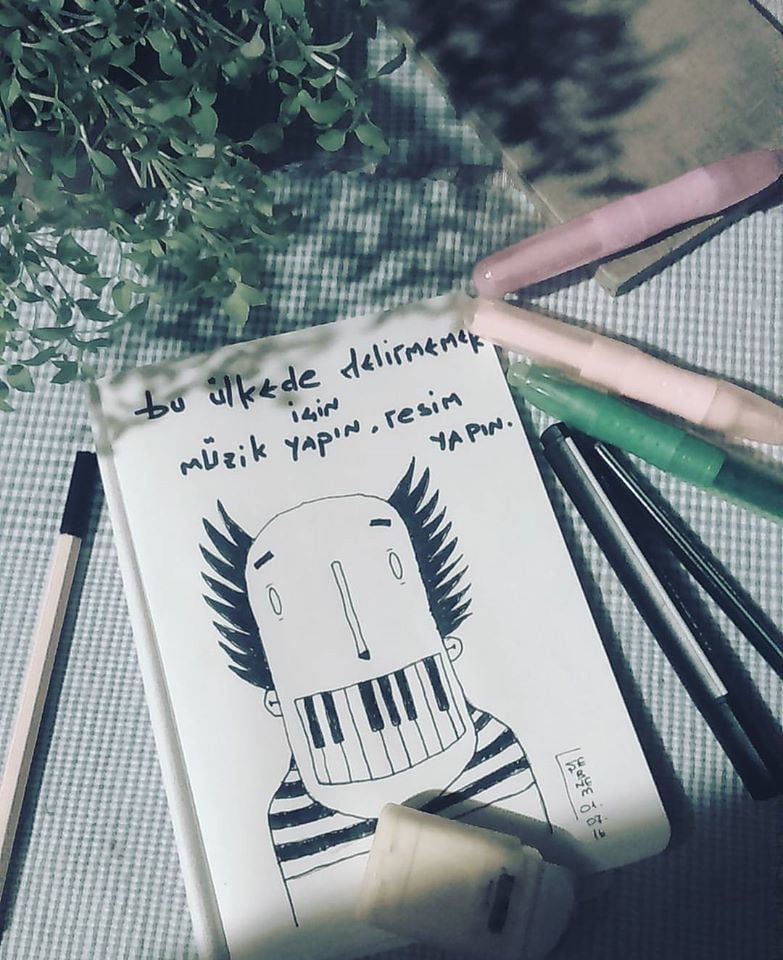 bu ülkede delirmemek
için
müzik YAPIN, resim
YAPIN.
ŞEBNEM 01.
07.
16